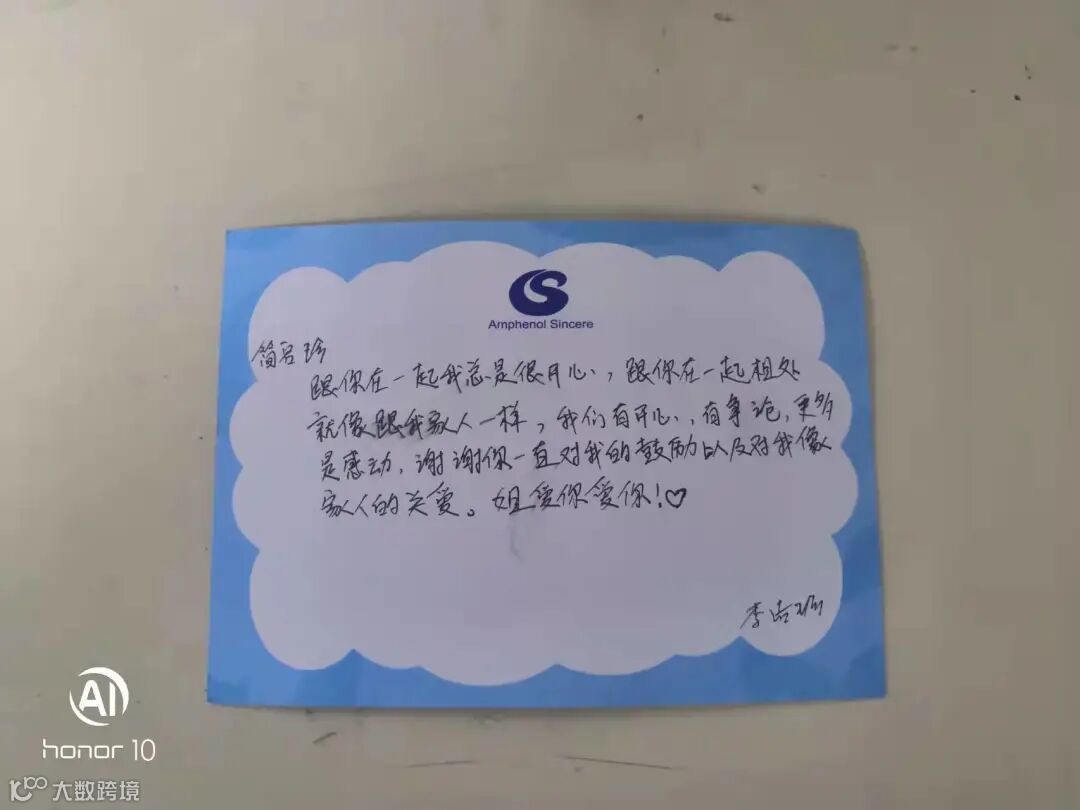 Amphenol Sincere
简名珍
跟你在一起我总是很开心，跟你在一起相处
就像跟我家人一样，我们有开心，有争论，更多
是感动，谢谢你一直对我的鼓励以及对我像
家人的关爱。姐爱你爱你！♡
李
AI
honor 10
大数跨境